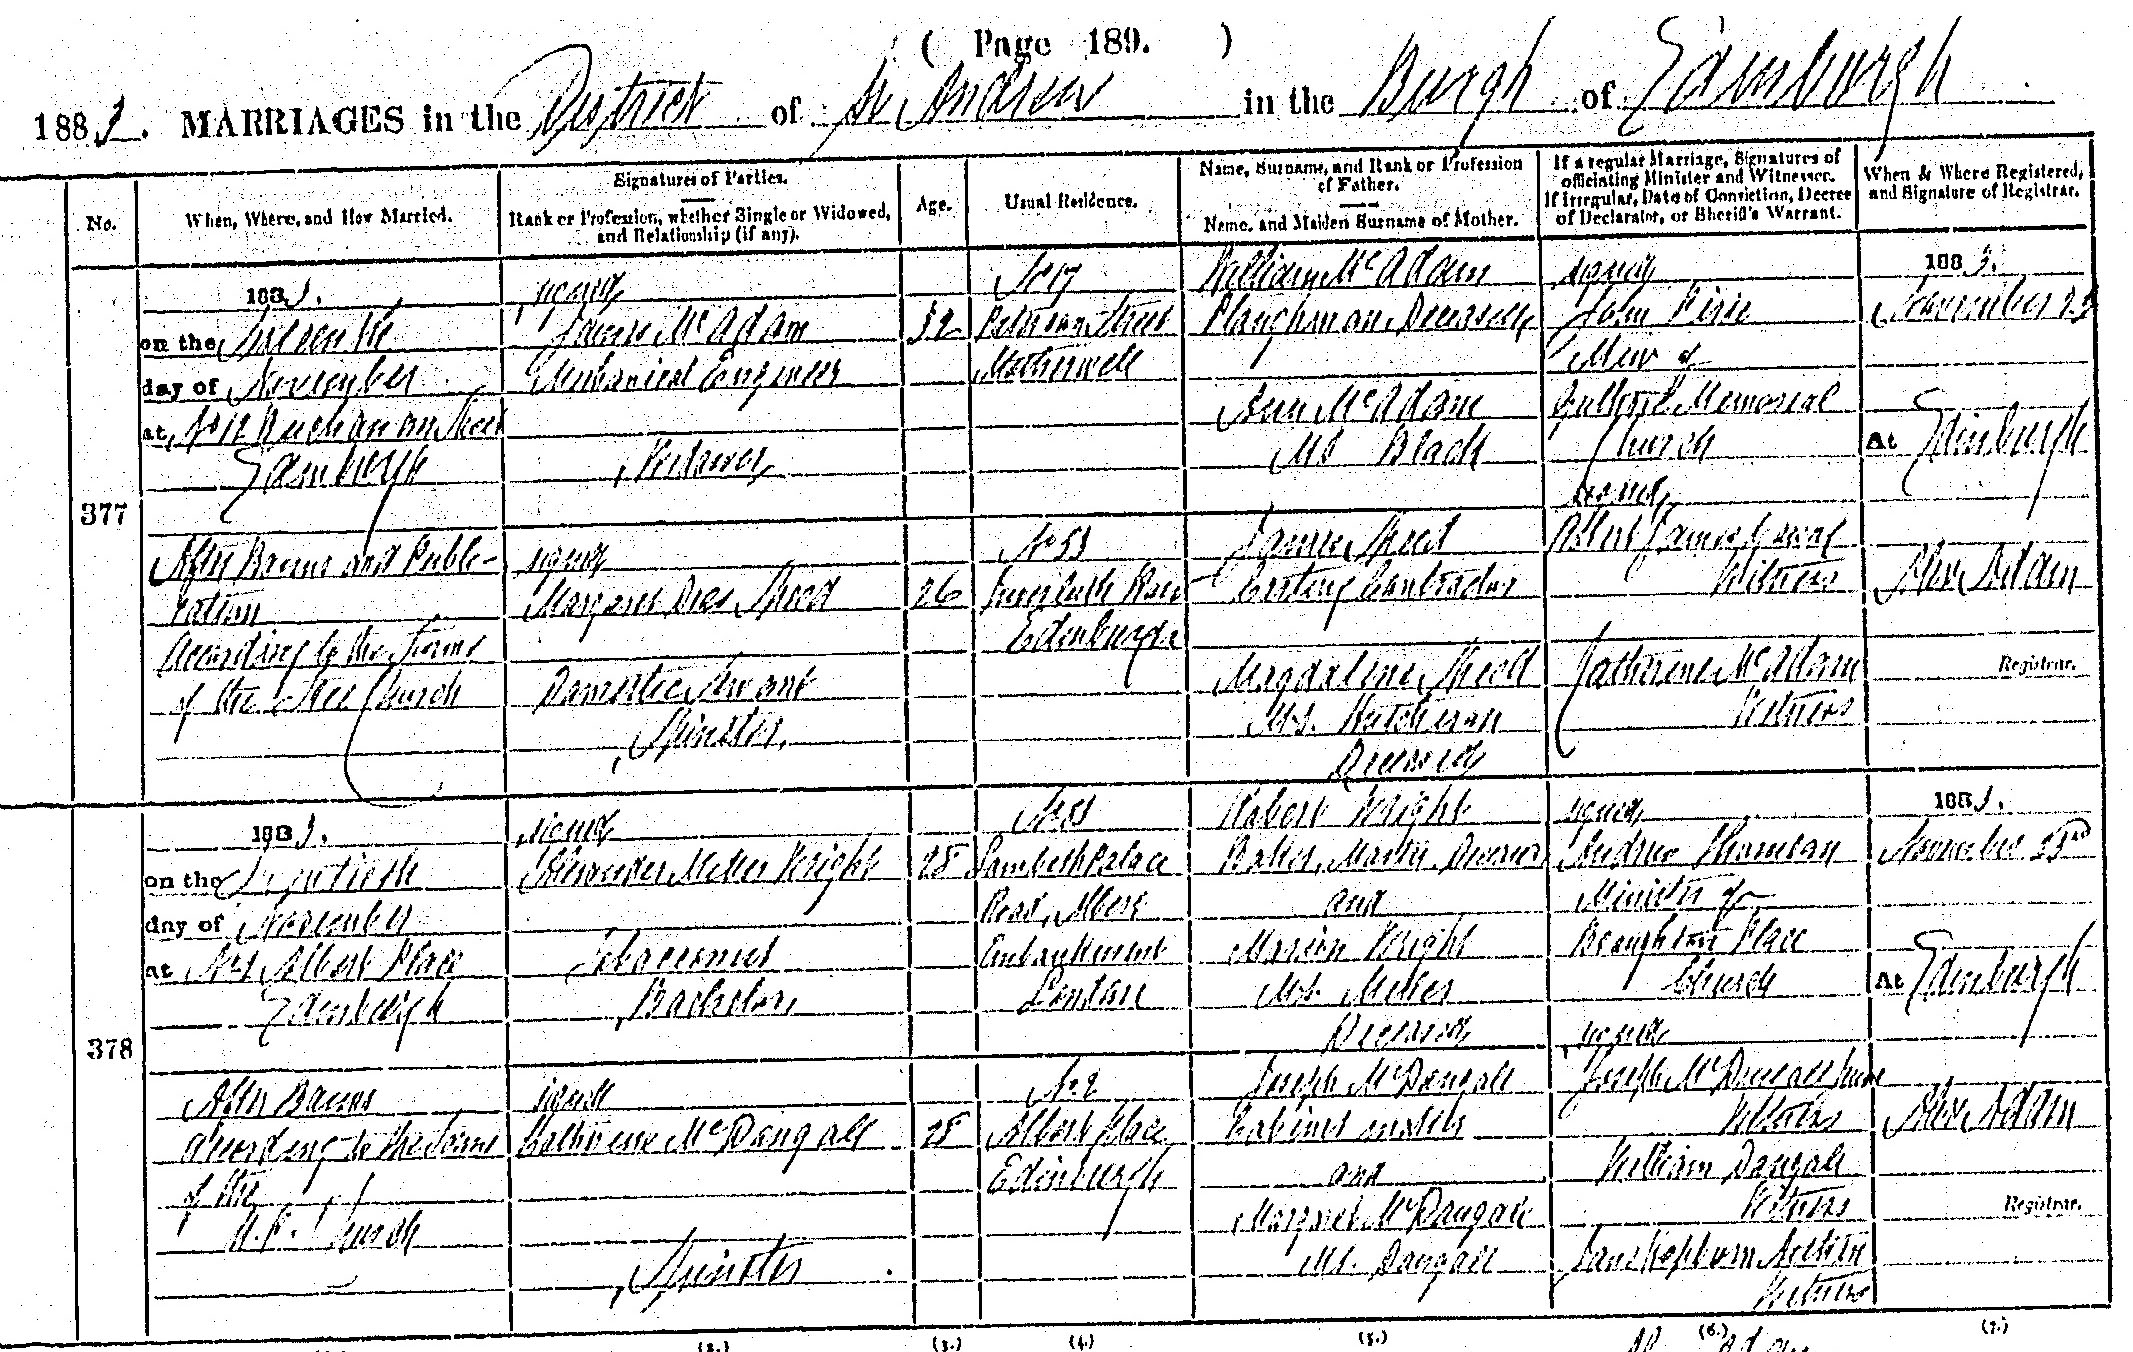 ( Page 189. )
1883. MARRIAGES in the District of St Andrew in the Burgh of Edinburgh
No.
When, Where, and How Married.
Signatures of Parties.
Rank or Profession, whether Single or Widowed, and Relationship (if any).
Age.
Usual Residence.
Name, Surname, and Rank or Profession of Father.
Name, and Maiden Surname of Mother.
If a regular Marriage, Signatures of officiating Minister and Witnesses.
If Irregular, Date of Conviction, Decree of Declarator, or Sheriff's Warrant.
When & Where Registered, and Signature of Registrar.
377
1883.
on the
day of November
at, No 12 Buchanan Street
Edinburgh
After Banns and Publi-
cation
According to the Forms
of the Free Church
signed
James McAdam
Mechanical Engineer
Widower
signed
Margaret Speed
Domestic Servant
Spinster
32
26
No 17
Street
Motherwell
No 53
Inverleith Row
Edinburgh
William McAdam
Ploughman Deceased
Ann McAdam
MS Black
James Speed
Carting Contractor
Magdalene Speed
M.S. Hutchison
Deceased
signed
John Pirie
Min of
Memorial
Church
signed
Robert James
Witness
Catherine McAdam
Witness
1883.
November 23
At Edinburgh
Alex Adam
Registrar.
378
1883.
on the Twentieth
day of November
at No 2 Albert Place
Edinburgh
After Banns
According to the Forms
of the
U.P. Church
signed
Alexander Miller Wright
Tobacconist
Bachelor
signed
Catherine McDougall
Spinster
28
28
Lambeth Palace
Road, Albert
Embankment
London
No 2
Albert Place
Edinburgh
Robert Wright
Baker, Master, Deceased
and
Marion Wright
M.S. Miller
Deceased
Joseph McDougall
Cabinet maker
and
Margaret McDougall
MS. Dougall
signed
Andrew Thomson
Minister of
Broughton Place
Church
signed
Joseph McDougall Junr
Witness
William Dougall
Witness
Jane Hepburn Aitken
Witness
1883.
November 23rd
At Edinburgh
Alex Adam
Registrar.
(2.) (3.) (4.) (5.) (6.) (7.)